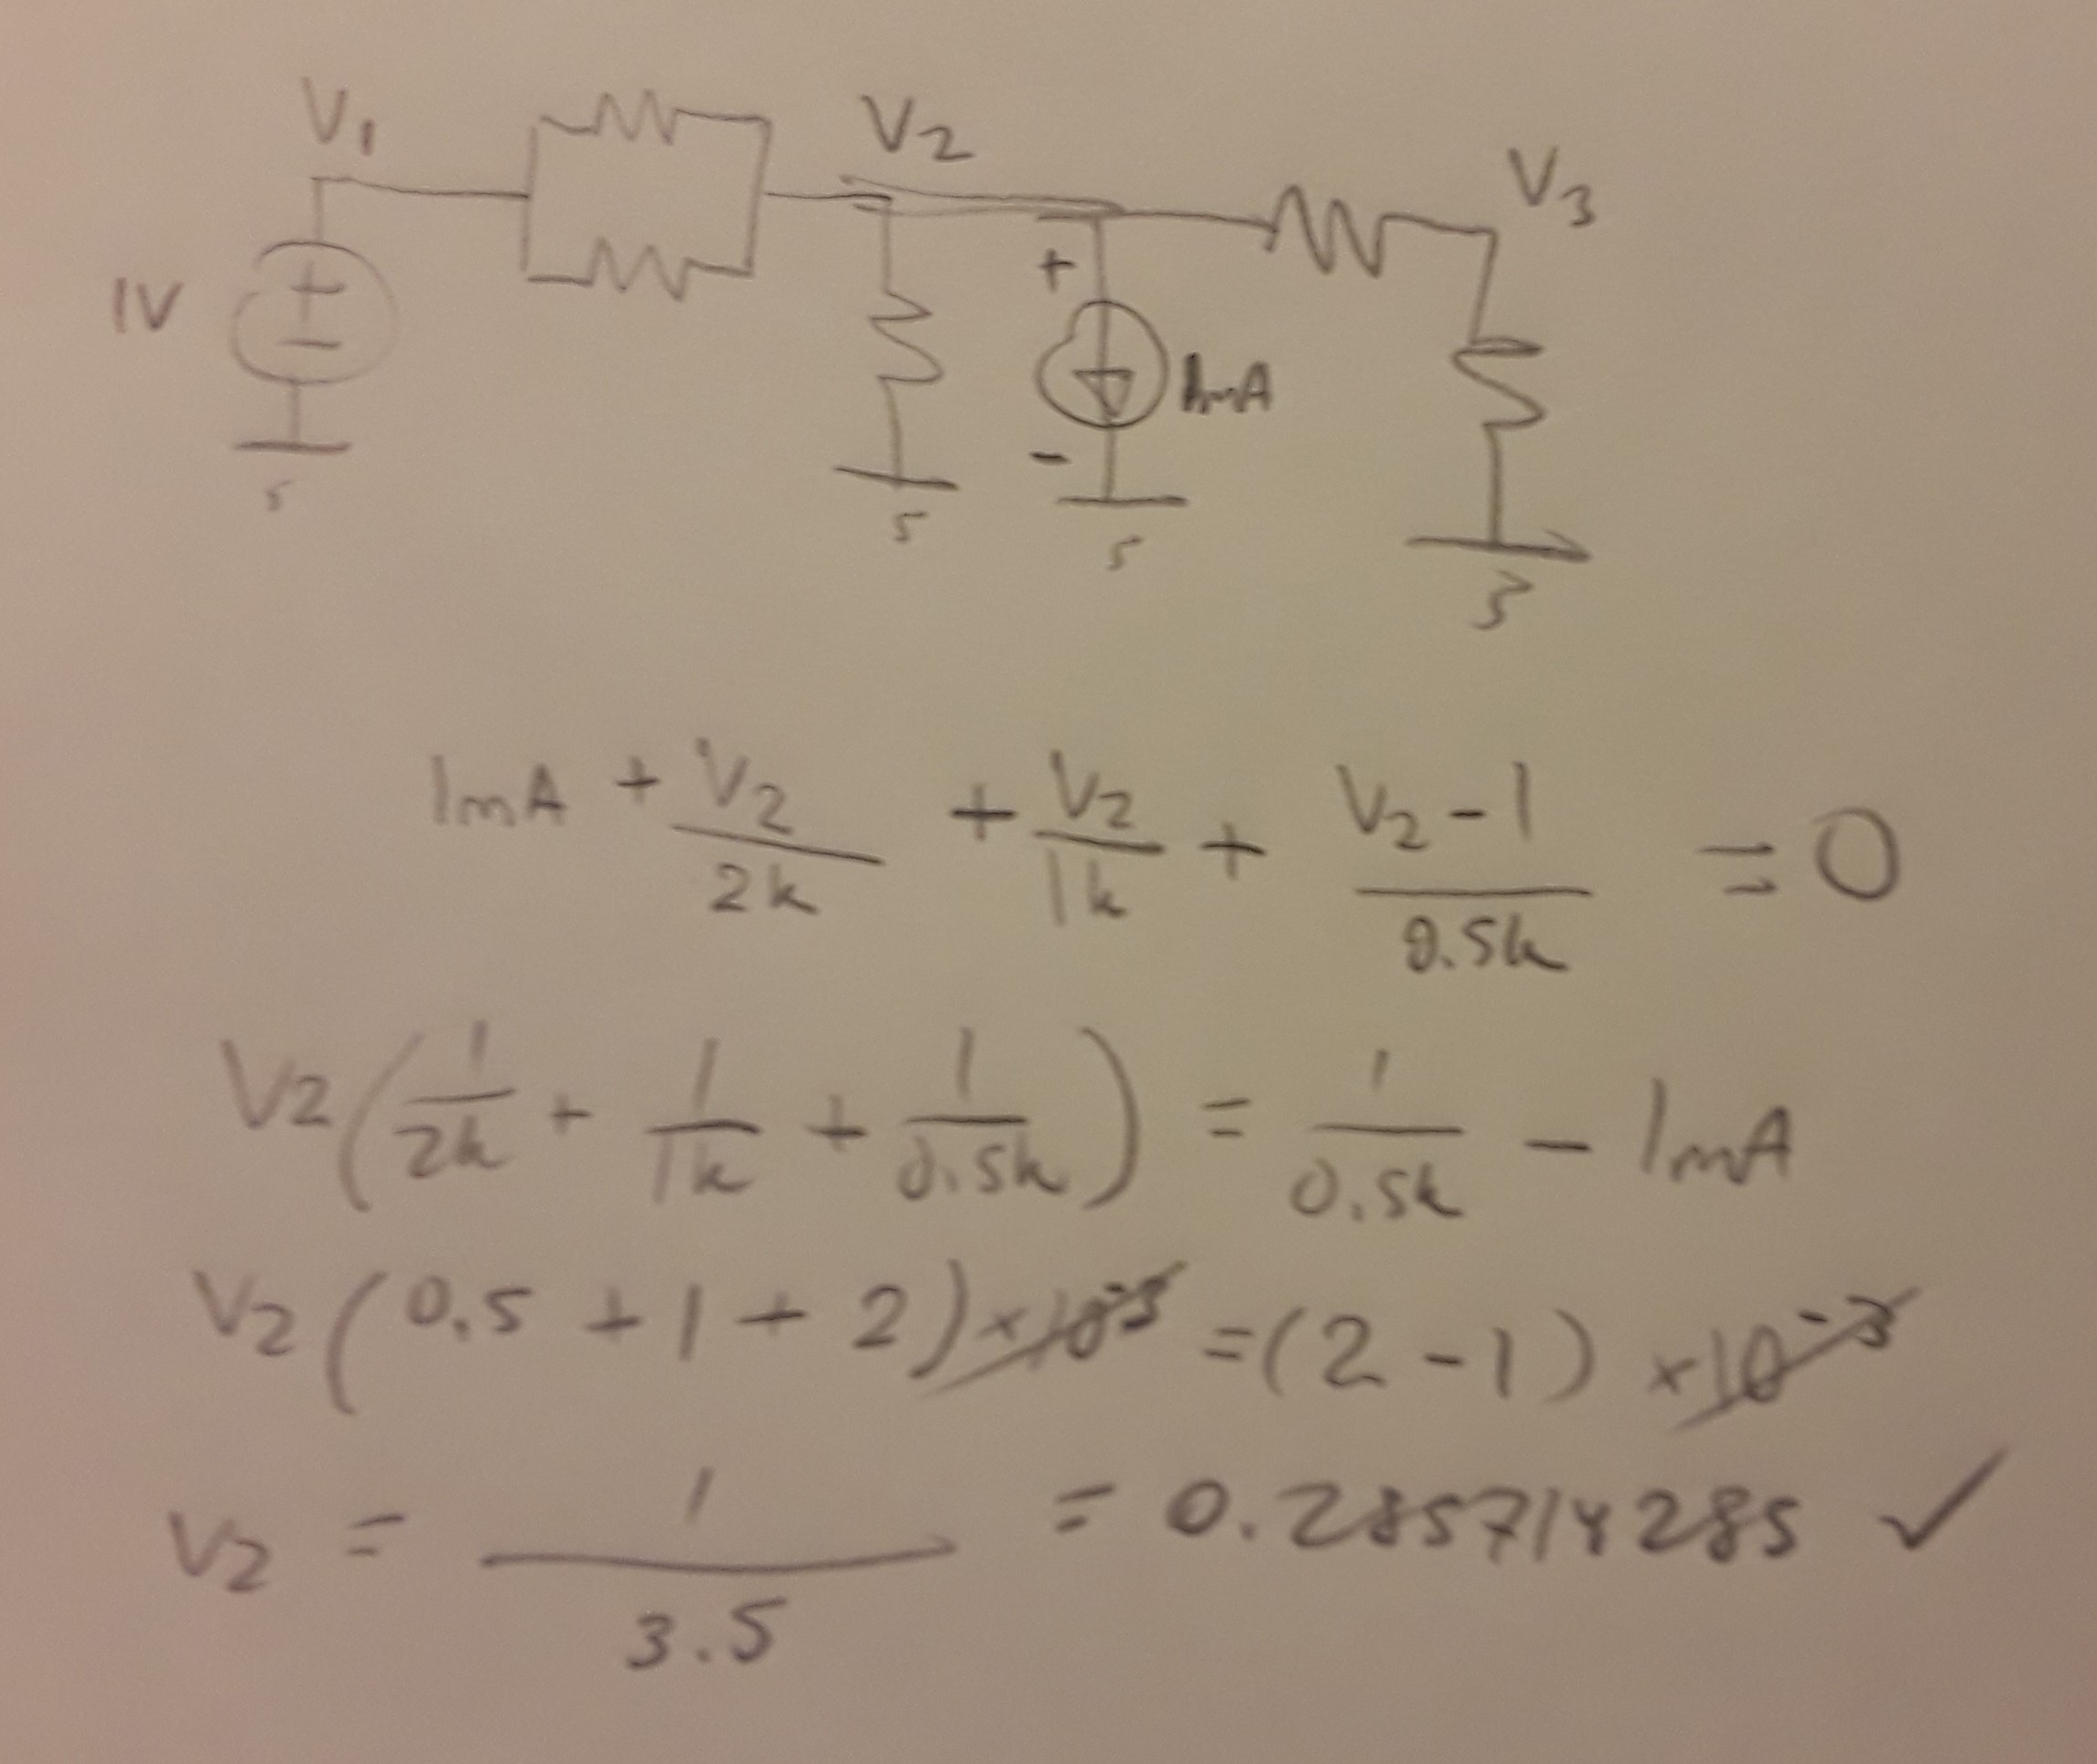 V1
V2
V3
+
1V
+
-
1mA
-
5
5
5
5
1mA + V2/2k + V2/1k + V2-1/0.5k = 0
V2(1/2k + 1/1k + 1/0.5k) = 1/0.5k - 1mA
V2(0.5 + 1 + 2)×10^-3 = (2 - 1)×10^-3
V2 = 1/3.5 = 0.285714285 ✓